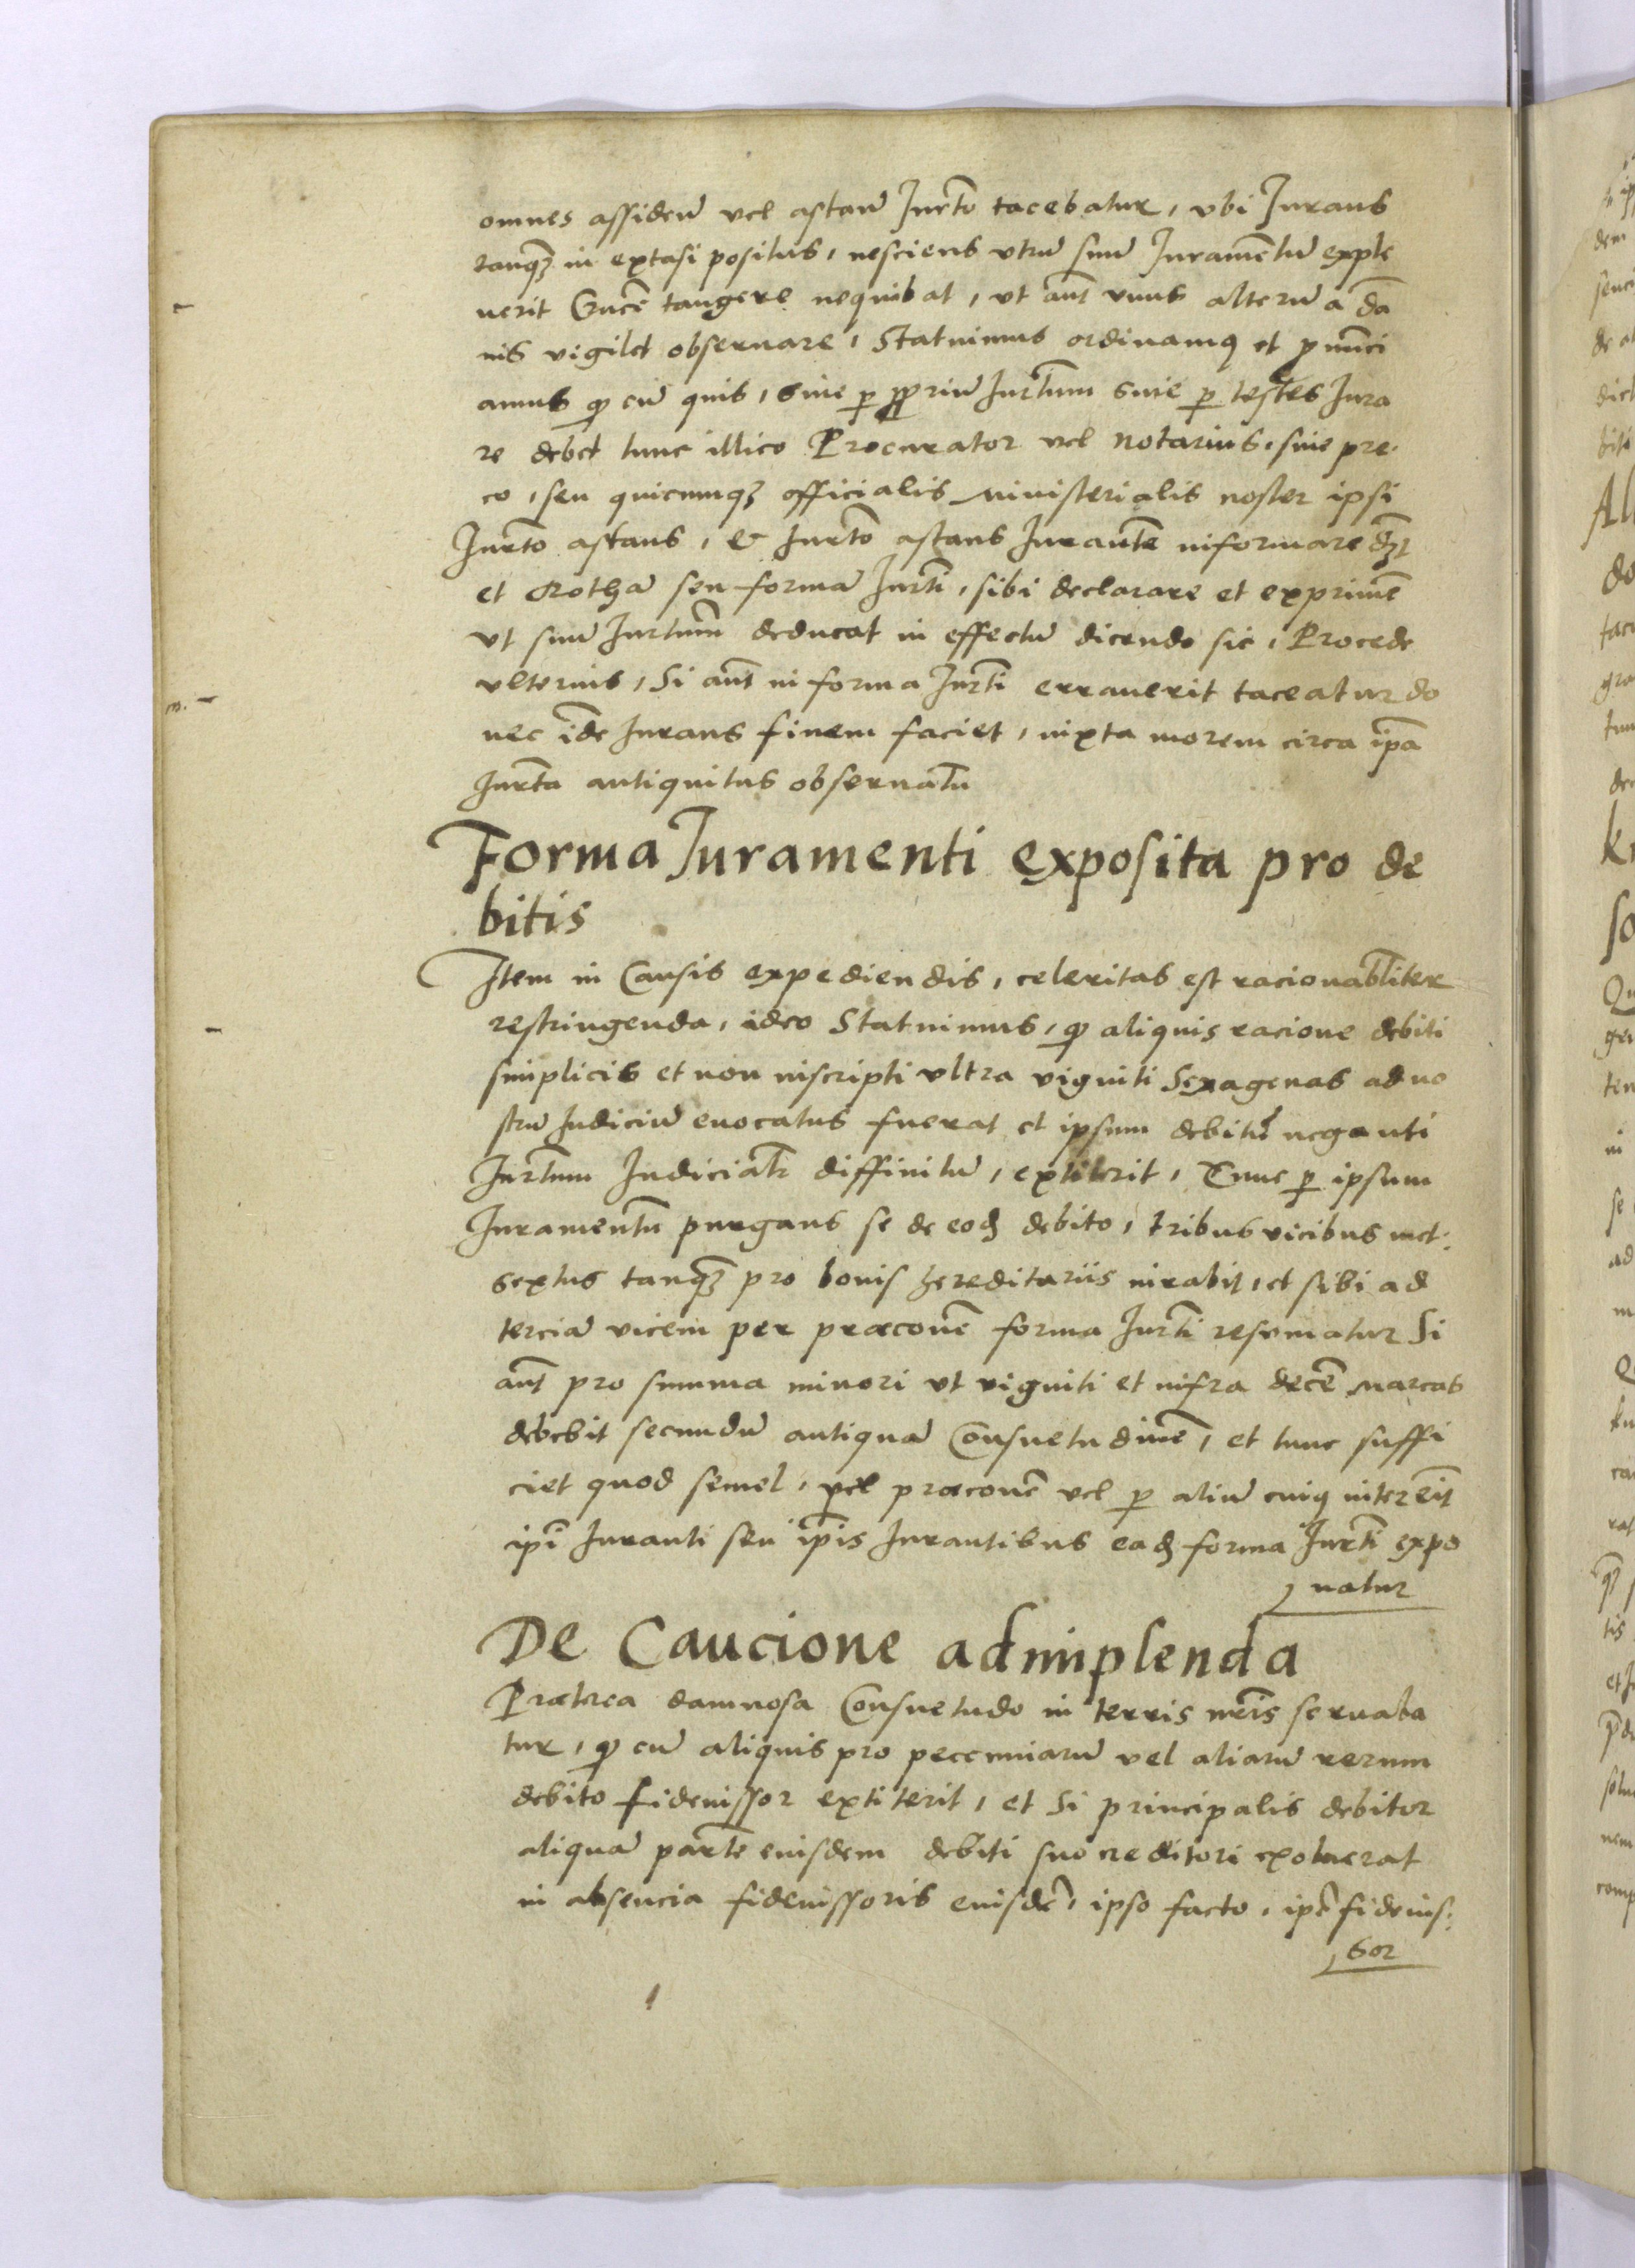 omnes assidenū vel astanū Jurto tacebatur, vbi Jurans
tanqȝ in extasi positus, nesciens vtrū suū Juramētū exple
uerit Crucē tangere nequibat, vt aūt vnus alterū a dā
nis vigilet obseruare, Statuimus ordinamꝯ et pnūnci
amus ꝙ cū quis, siue ꝑ ꝓpriū Jurtum siue ꝑ testes Jura
re debet tunc illico Procurator vel notarius, siue pre
co, seu quicumqȝ officialis ministerialis noster ipsi
Jurto astans, & Jurto astans Jurantē informare dȝ
et Rothā seu formā Jurti, sibi declarare et exprimē
vt suū Jurtum deducat in effectū dicendo sic, Procede
vlterius, Si aūt in forma Jurti errauerit taceatur do
nec idē Jurans finem faciet, iuxta morem circa ipa
Jurta antiquitus obseruatū
Forma Juramenti exposita pro de
bitis
Item in Causis expediendis, celeritas est racionabliter
restringenda, ideo Statuimus, ꝙ aliquis racione debiti
simplicis et non inscripti vltra viginti Sexagenas ad no
strū Judiciū euocatus fuerat et ipsum debitū neganti
Jurtum Judicialr diffinitū, extiterit, Tunc ꝑ ipsum
Juramentū purgans se de eodȝ debito, tribus vicibus met
sextus tanqȝ pro bonis hereditariis iurabit, et sibi ad
terciā vicem per præconē forma Jurti resumatur Si
aūt pro summa minori vt viginti et infra decē marcas
debebit secundū antiquā Consuetudinē, et tunc suffi
ciet quod semel, vel præconē vel ꝑ aliū cuiꝯ intererit
ipi Juranti seu ipis Jurantibus eadȝ forma Jurti expo
natur
De Caucione adimplenda
Præterea damnosa Consuetudo in terris nris seruaba
tur, ꝙ cū aliquis pro peccuniarū vel aliarū rerum
debito fideiussor extiterit, et Si principalis debitor
aliquā partē eiusdem debiti suo creditori exoluerat
in absencia fideiussoris eiusdē, ipso facto, ipē fideius
sor